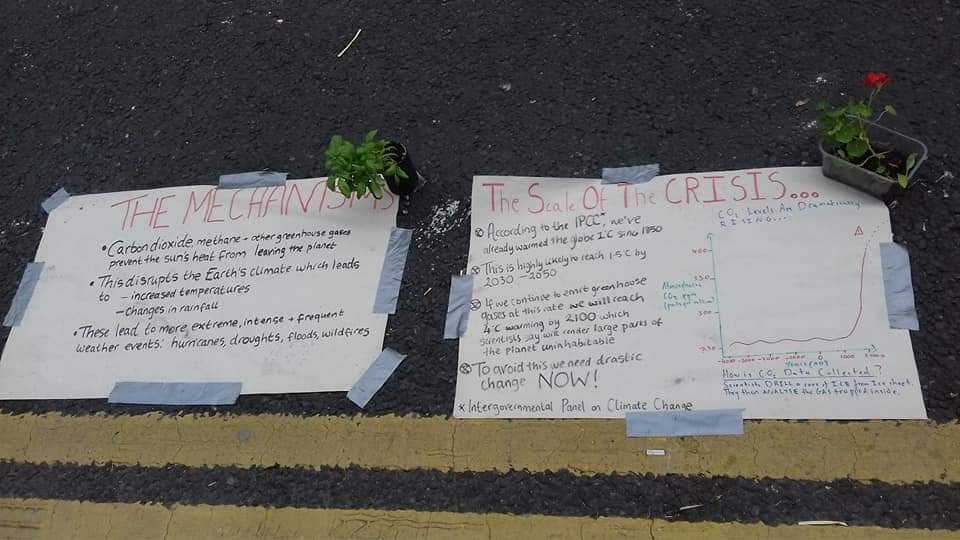 THE MECHANISMS
• Carbon dioxide, methane + other greenhouse gases
prevent the sun's heat from leaving the planet
• This disrupts the Earth's climate which leads
to - increased temperatures
- Changes in rainfall
• These lead to more extreme, intense + frequent
weather events: hurricanes, droughts, floods, wildfires
The Scale Of The CRISIS...
According to the IPCC*, we've
already warmed the globe 1°C since 1850
This is highly likely to reach 1.5°C by
2030 - 2050
If we continue to emit greenhouse
gases at this rate we will reach
4°C warming by 2100 which
scientists say will render large parts of
the planet uninhabitable
To avoid this we need drastic
change NOW!
* Intergovernmental Panel on Climate Change
CO2 Levels Are Dramatically
RISING...
400
350
300
Atmospheric
CO2 ppm
0 1000
How is CO2 Data Collected?
Scientists DRILL a core of ICE from Ice sheet.
They then ANALYSE the GAS trapped inside.